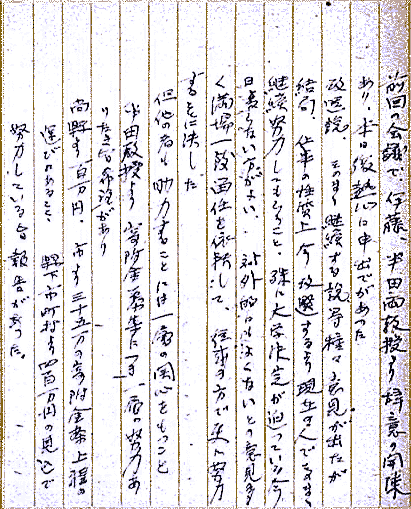 前回の会議で伊藤、半田両教授より辞意の開陳
あり、本日後熱心に申出でがあった
改選説、そのまゝ継続する説等種々意見が出たが
結局、仕事の性質上今改選するより現在の人でそのまゝ
継続努力してもらうこと、殊に大学決定が迫っている今
日変えない方がよい、対外的にもよくないとの意見多
く満場一致両任を依頼して、従来の方で更に努力
することに決した
但他の者も助力することには一層の関心をもつこと
半田教授より寄附金募集につき一層の努力あ
りたき旨希望があり
尚縣より一百万円、市より三十五万の寄附金案上程の
運びにあること、縣下市町村より四百万円の見込で
努力している旨報告があった。